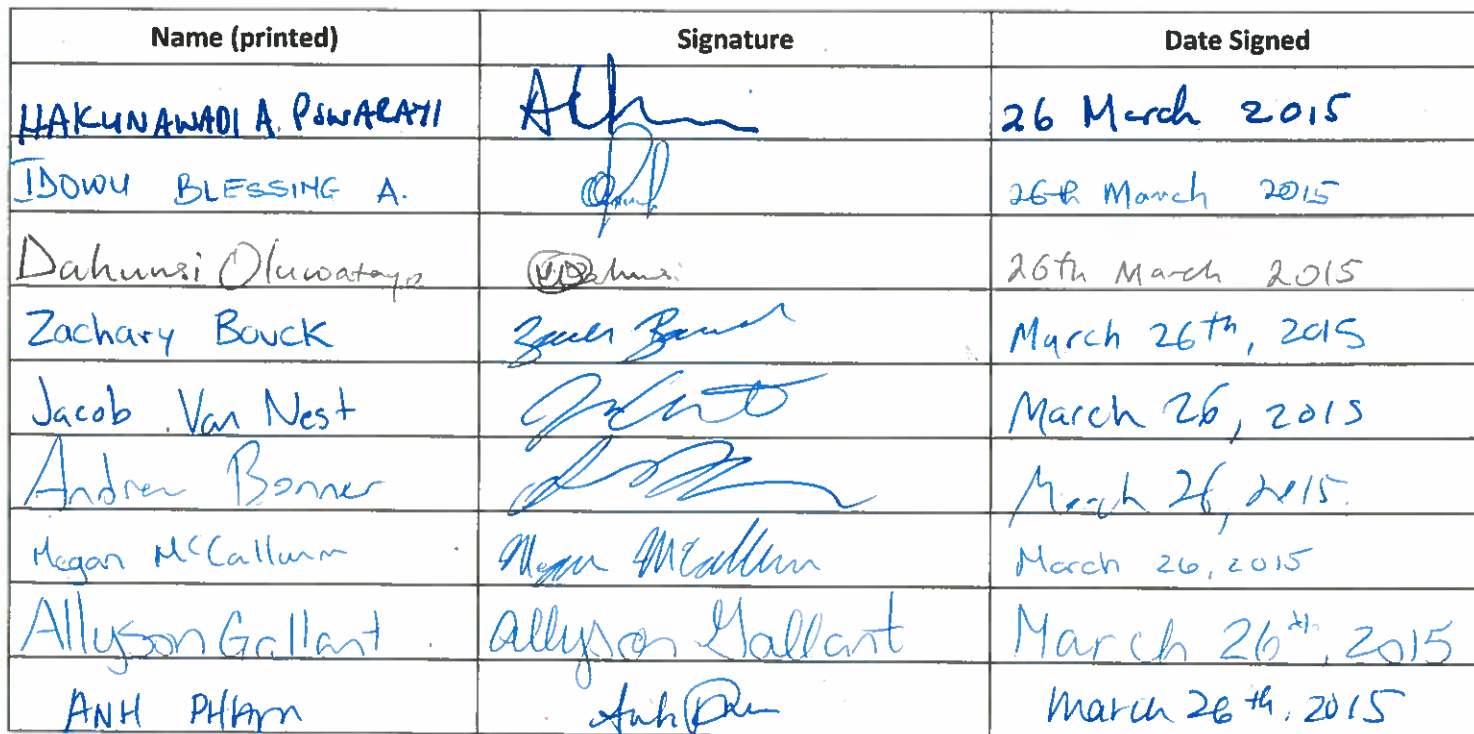 Name (printed) Signature Date Signed
HAKUNAWADI A. PSWARAYI 26 March 2015
IDOWU BLESSING A. 26th March 2015
Dahunsi Oluwatayo Dahunsi 26th March 2015
Zachary Bouck Zach Bouck March 26th, 2015
Jacob Van Nest March 26, 2015
Andrew Bonner March 26, 2015
Megan McCallum Megan McCallum March 26, 2015
Allyson Gallant Allyson Gallant March 26th, 2015
ANH PHAM Anh Pham March 26th, 2015